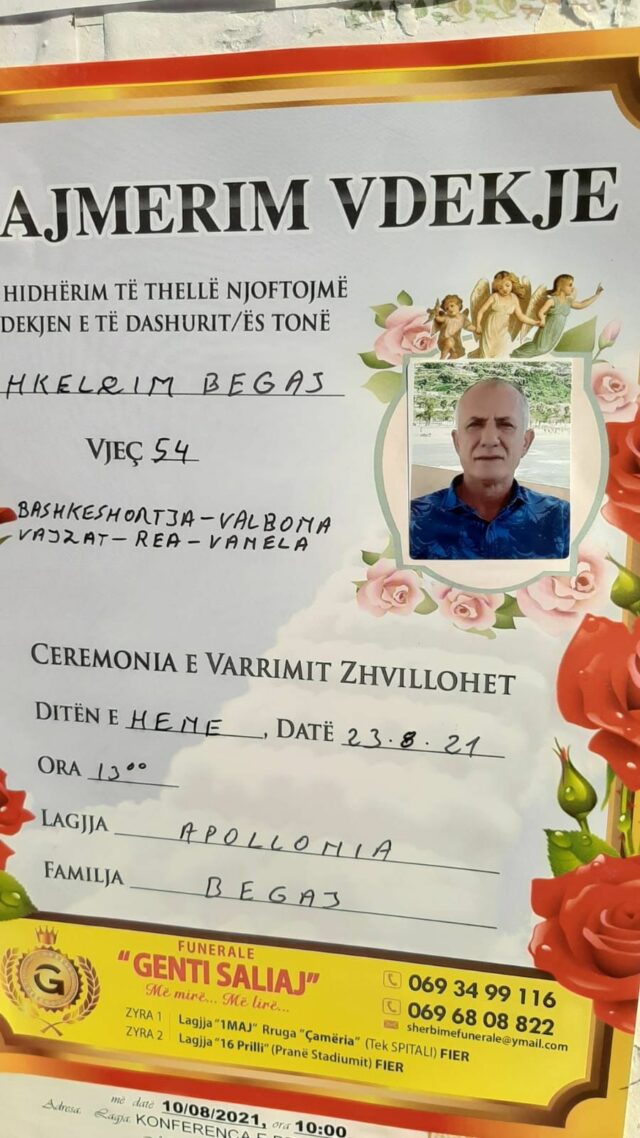 AJMERIM VDEKJE
HIDHËRIM TË THELLË NJOFTOJMË
DEKJEN E TË DASHURIT/ËS TONË
HKELRIM BEGAJ
VJEÇ 54
BASHKESHORTJA-VALBONA
VAJZAT-REA-VANELA
CEREMONIA E VARRIMIT ZHVILLOHET
DITËN E HENE, DATË 23.8.21
ORA 13⁰⁰
LAGJJA APOLLONIA
FAMILJA BEGAJ
G
FUNERALE
"GENTI SALIAJ"
Më mirë... Më lirë...
069 34 99 116
069 68 08 822
sherbimefunerale@ymail.com
ZYRA 1 Lagjja "1MAJ" Rruga "Çamëria" (Tek SPITALI) FIER
ZYRA 2 Lagjja "16 Prilli" (Pranë Stadiumit) FIER
më datë 10/08/2021, ora 10:00
Adresa: Lagja: KONFERENCA E